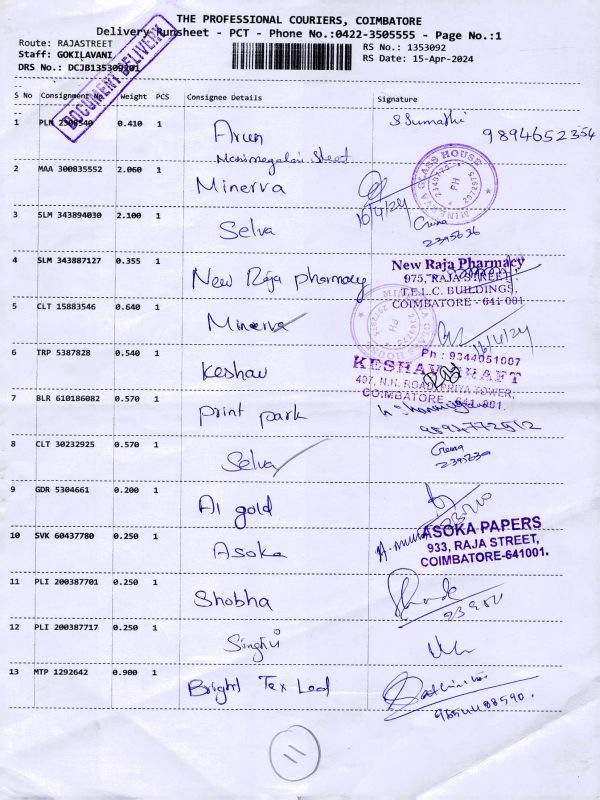 THE PROFESSIONAL COURIERS, COIMBATORE
Delivery Runsheet - PCT - Phone No.:0422-3505555 - Page No.:1
Route: RAJASTREET
RS No.: 1353092
Staff: GOKILAVANI
RS Date: 15-Apr-2024
DRS No.: DCJB135309201
DOCUMENT DELIVERY
S No Consignment No. Weight PCS Consignee Details Signature
1 0.410 1 Arun S Sumathi 9894652354
Street
2 MAA 300835552 2.060 1 Minerva 16/4/24
MINERVA GLASS HOUSE PH
3 SLM 343894030 2.100 1 Selva
2395636
4 SLM 343887127 0.355 1 New Raja pharmacy
New Raja Pharmacy
975, RAJA STREET,
T.E.L.C. BUILDINGS,
COIMBATORE - 641 001
5 CLT 15883546 0.640 1 Minerva 16/4/24
6 TRP 5387828 0.540 1 Keshav
Ph : 9344051007
KESHAV KRAFT
407, N.H. ROAD, PRIYA TOWER,
COIMBATORE - 641 001.
7 BLR 610186082 0.570 1 Print park
8 CLT 30232925 0.570 1 Selva
9 GDR 5304661 0.200 1 A1 gold
10 SVK 60437780 0.250 1 Asoka
ASOKA PAPERS
933, RAJA STREET,
COIMBATORE-641001.
11 PLI 200387701 0.250 1 Shobha
12 PLI 200387717 0.250 1 Singhvi
13 MTP 1292642 0.900 1 Bright Tex
11